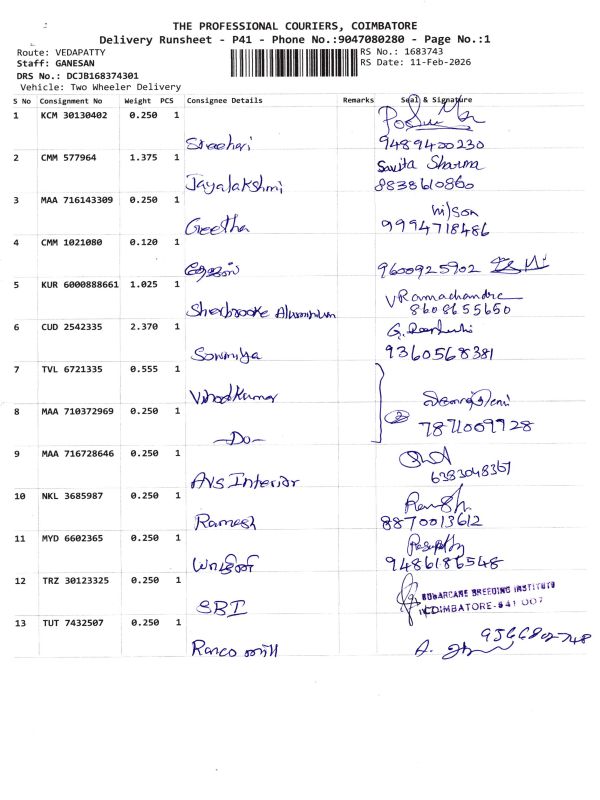 THE PROFESSIONAL COURIERS, COIMBATORE
Delivery Runsheet - P41 - Phone No.:9047080280 - Page No.:1
Route: VEDAPATTY RS No.: 1683743
Staff: GANESAN RS Date: 11-Feb-2026
DRS No.: DCJB168374301
Vehicle: Two Wheeler Delivery
S No Consignment No Weight PCS Consignee Details Remarks Seal & Signature
1 KCM 30130402 0.250 1
Sreehari 9489400230
2 CMM 577964 1.375 1 Savita Sharma
Jayalakshmi 8838610860
3 MAA 716143309 0.250 1 Wilson
Geetha 9994718486
4 CMM 1021080 0.120 1
9600925902
5 KUR 6000888661 1.025 1 V Ramachandra
Sherbrooke Aluminium 8608655650
6 CUD 2542335 2.370 1
Sowmiya 9360568381
7 TVL 6721335 0.555 1
Vinod Kumar
8 MAA 710372969 0.250 1 2
-Do- 7871009728
9 MAA 716728646 0.250 1
AVS Interior 6383048367
10 NKL 3685987 0.250 1
Ramesh 8870013612
11 MYD 6602365 0.250 1
9486186548
12 TRZ 30123325 0.250 1 SUGARCANE BREEDING INSTITUTE
SBI COIMBATORE-641 007
13 TUT 7432507 0.250 1
Ranco மணி